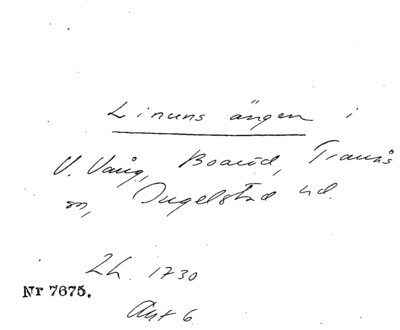 Linuns ängen i
V. Vång, Boaröd, Tranås
sn, Ingelstad hd.
Lh. 1730
Nr 7675.
Akt 6